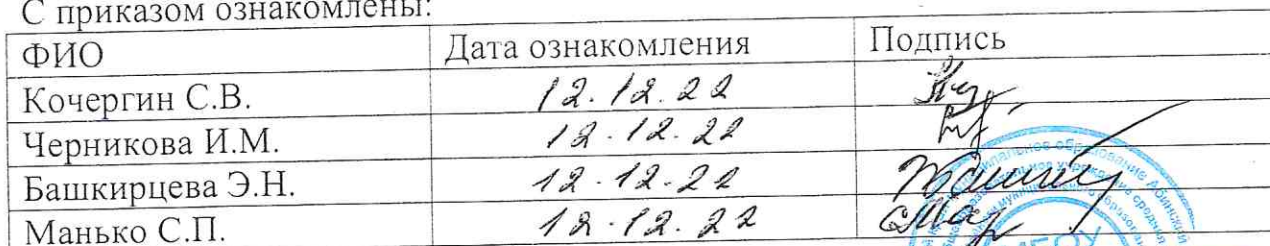 С приказом ознакомлены:
ФИО Дата ознакомления Подпись
Кочергин С.В. 12.12.22
Черникова И.М. 12.12.22
Башкирцева Э.Н. 12.12.22
Манько С.П. 12.12.22